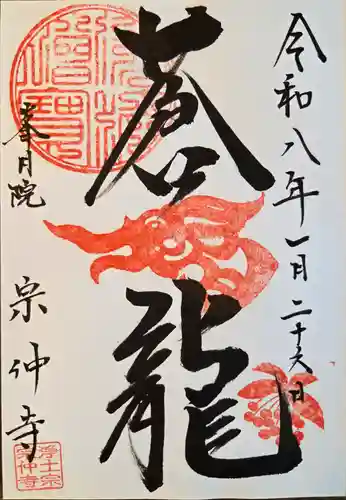 令和八年一月二十六日
蒼龍
峯月院
宗仲寺
浄土宗
宗仲寺